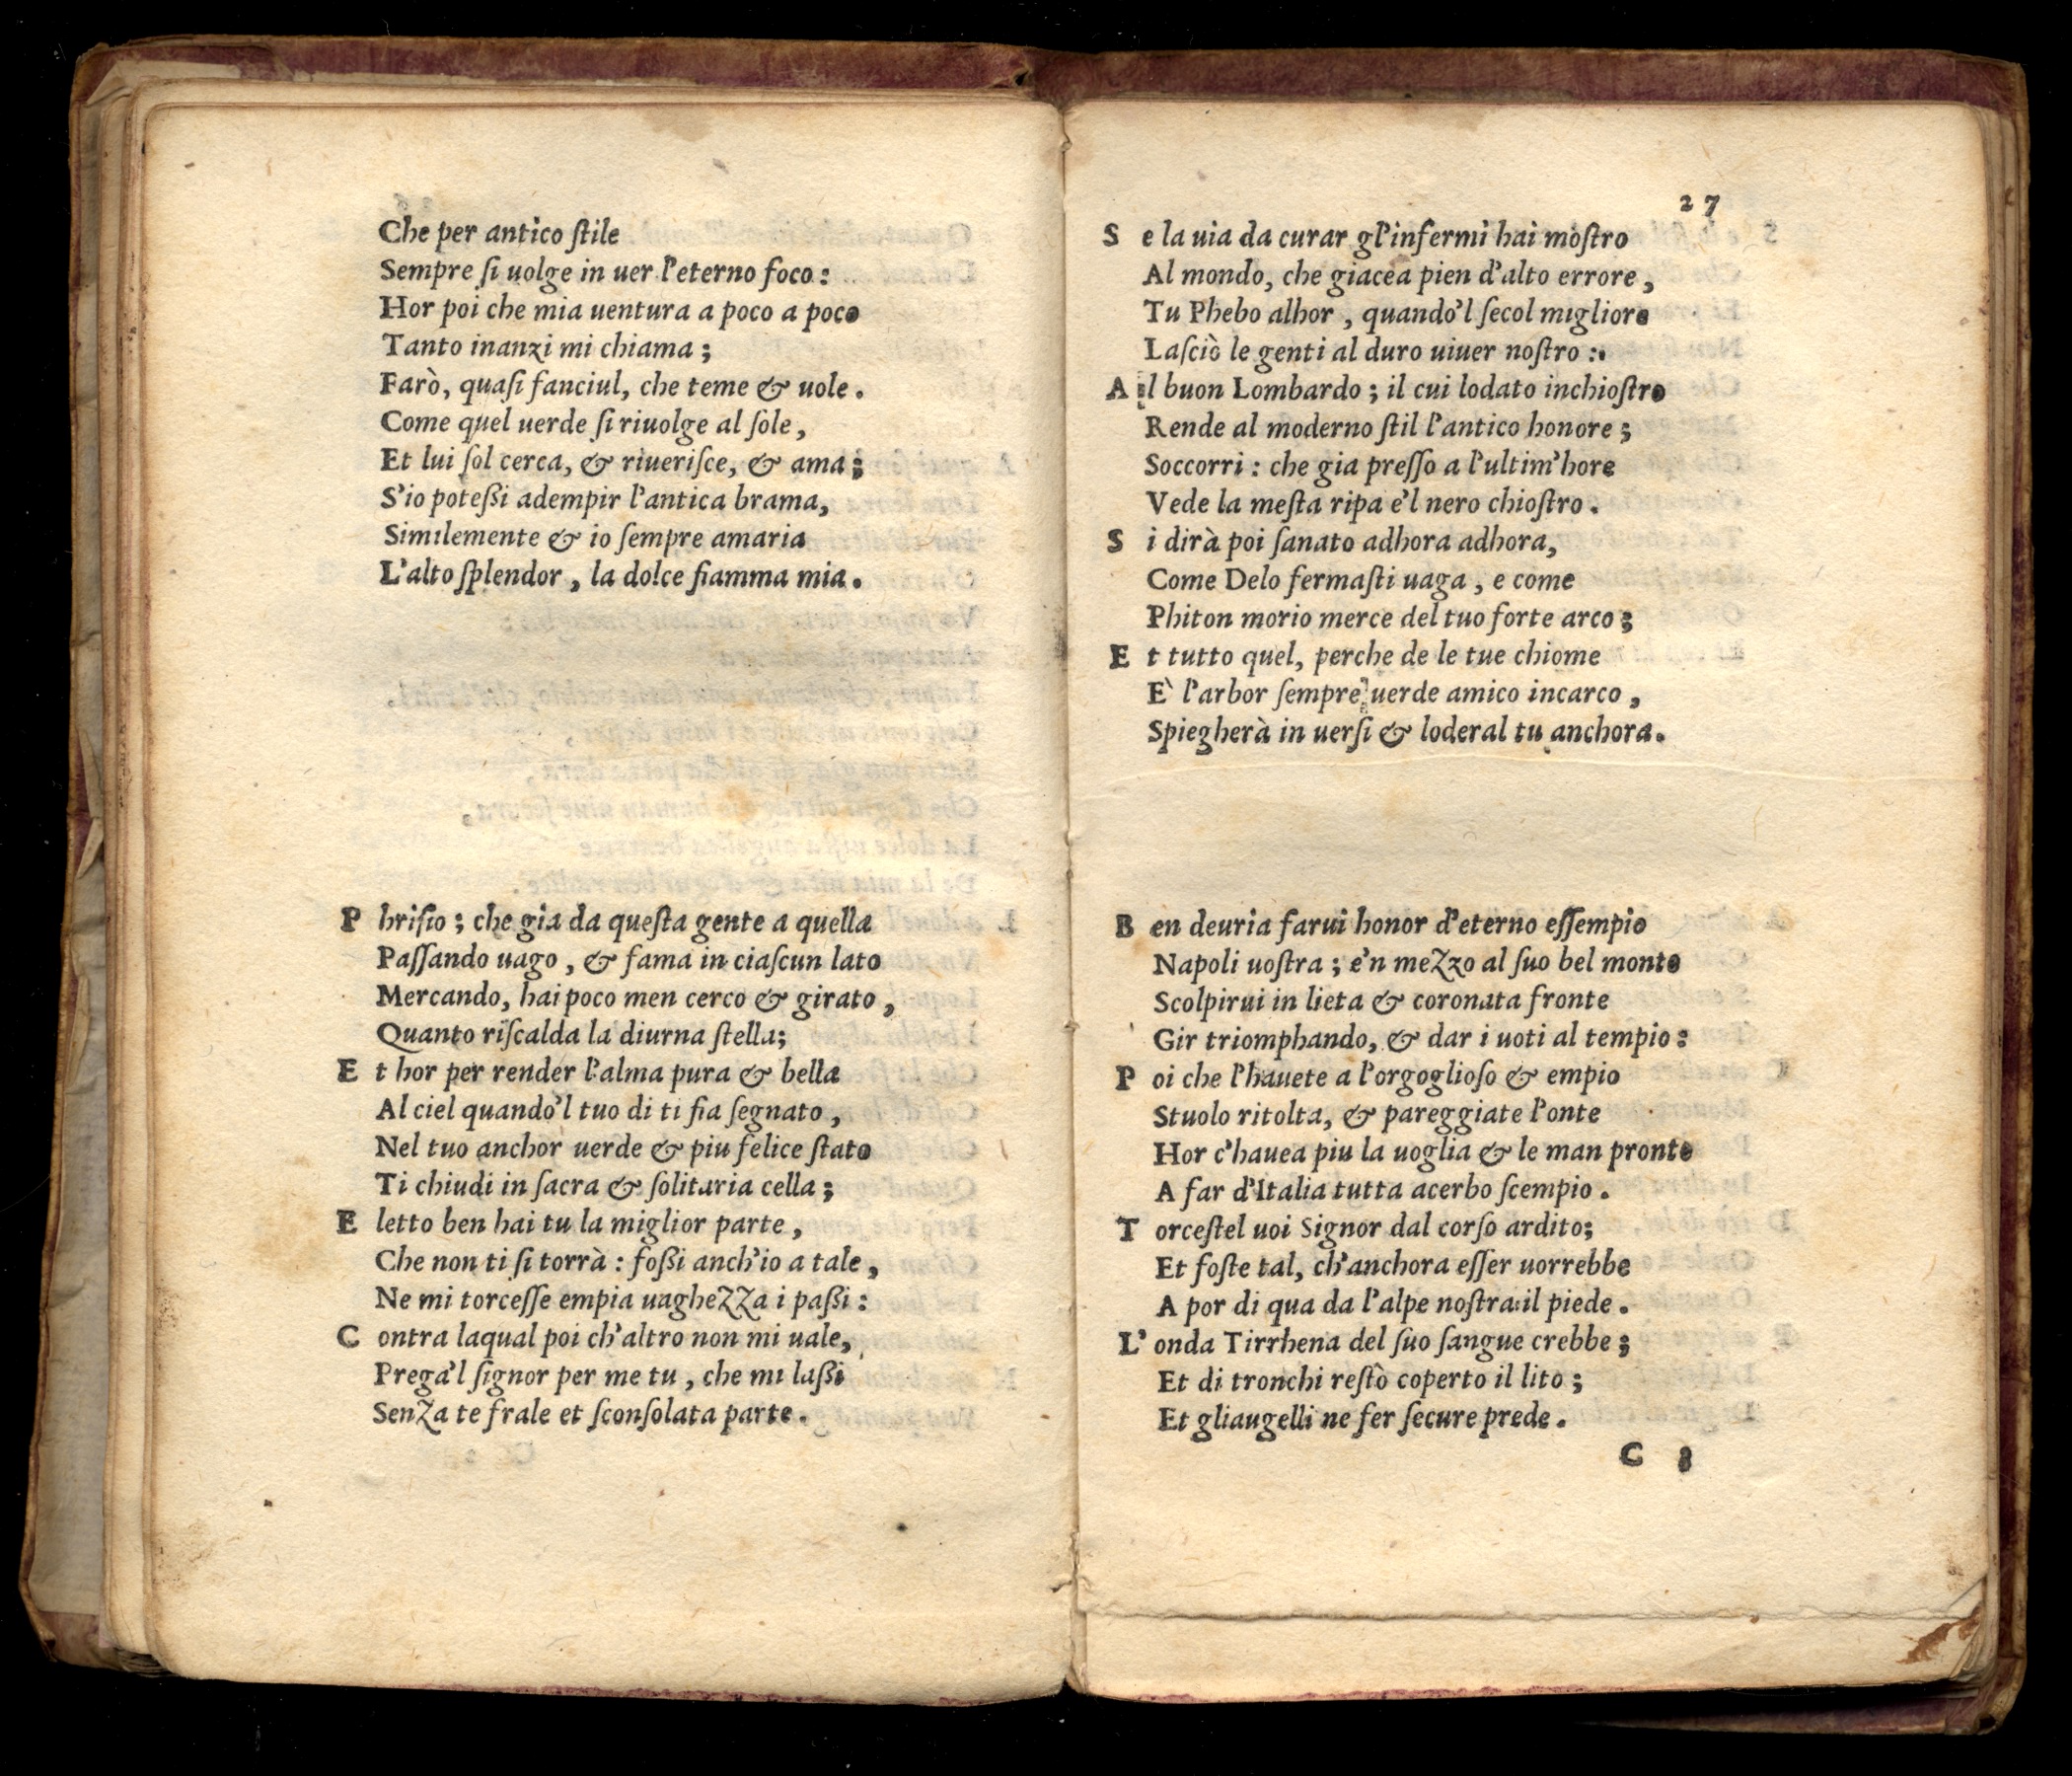 Che per antico ſtile
Sempre ſi uolge in uer l'eterno foco:
Hor poi che mia uentura a poco a poco
Tanto inanzi mi chiama;
Farò, quaſi fanciul, che teme & uole.
Come quel uerde ſi riuolge al ſole,
Et lui ſol cerca, & riueriſce, & ama;
S'io poteßi adempir l'antica brama,
Similemente & io ſempre amaria
L'alto ſplendor, la dolce fiamma mia.
P hriſio; che gia da queſta gente a quella
Paſſando uago, & fama in ciaſcun lato
Mercando, hai poco men cerco & girato,
Quanto riſcalda la diurna ſtella;
E t hor per render l'alma pura & bella
Al ciel quando'l tuo di ti fia ſegnato,
Nel tuo anchor uerde & piu felice ſtato
Ti chiudi in ſacra & ſolitaria cella;
E letto ben hai tu la miglior parte,
Che non ti ſi torrà: foßi anch'io a tale,
Ne mi torceſſe empia uaghezza i paßi:
C ontra laqual poi ch'altro non mi uale,
Prega'l ſignor per me tu, che mi laßi
Senza te frale et ſconſolata parte.
27
S e la uia da curar gl'infermi hai moſtro
Al mondo, che giacea pien d'alto errore,
Tu Phebo alhor, quando'l ſecol migliore
Laſciò le genti al duro uiuer noſtro:.
A l buon Lombardo; il cui lodato inchioſtro
Rende al moderno ſtil l'antico honore;
Soccorri: che gia preſſo a l'ultim'hore
Vede la meſta ripa e'l nero chioſtro.
S i dirà poi ſanato adhora adhora,
Come Delo fermaſti uaga, e come
Phiton morio merce del tuo forte arco;
E t tutto quel, perche de le tue chiome
E` l'arbor ſempre uerde amico incarco,
Spiegherà in uerſi & loderal tu anchora.
B en deuria farui honor d'eterno eſſempio
Napoli uoſtra; e'n mezzo al ſuo bel monte
Scolpirui in lieta & coronata fronte
Gir triomphando, & dar i uoti al tempio:
P oi che l'hauete a l'orgoglioſo & empio
Stuolo ritolta, & pareggiate l'onte
Hor c'hauea piu la uoglia & le man pronte
A far d'Italia tutta acerbo ſcempio.
T orceſtel uoi Signor dal corſo ardito;
Et foſte tal, ch'anchora eſſer uorrebbe
A por di qua da l'alpe noſtra il piede.
L' onda Tirrhena del ſuo ſangue crebbe;
Et di tronchi reſtò coperto il lito;
Et gliaugelli ne fer ſecure prede.
C 3